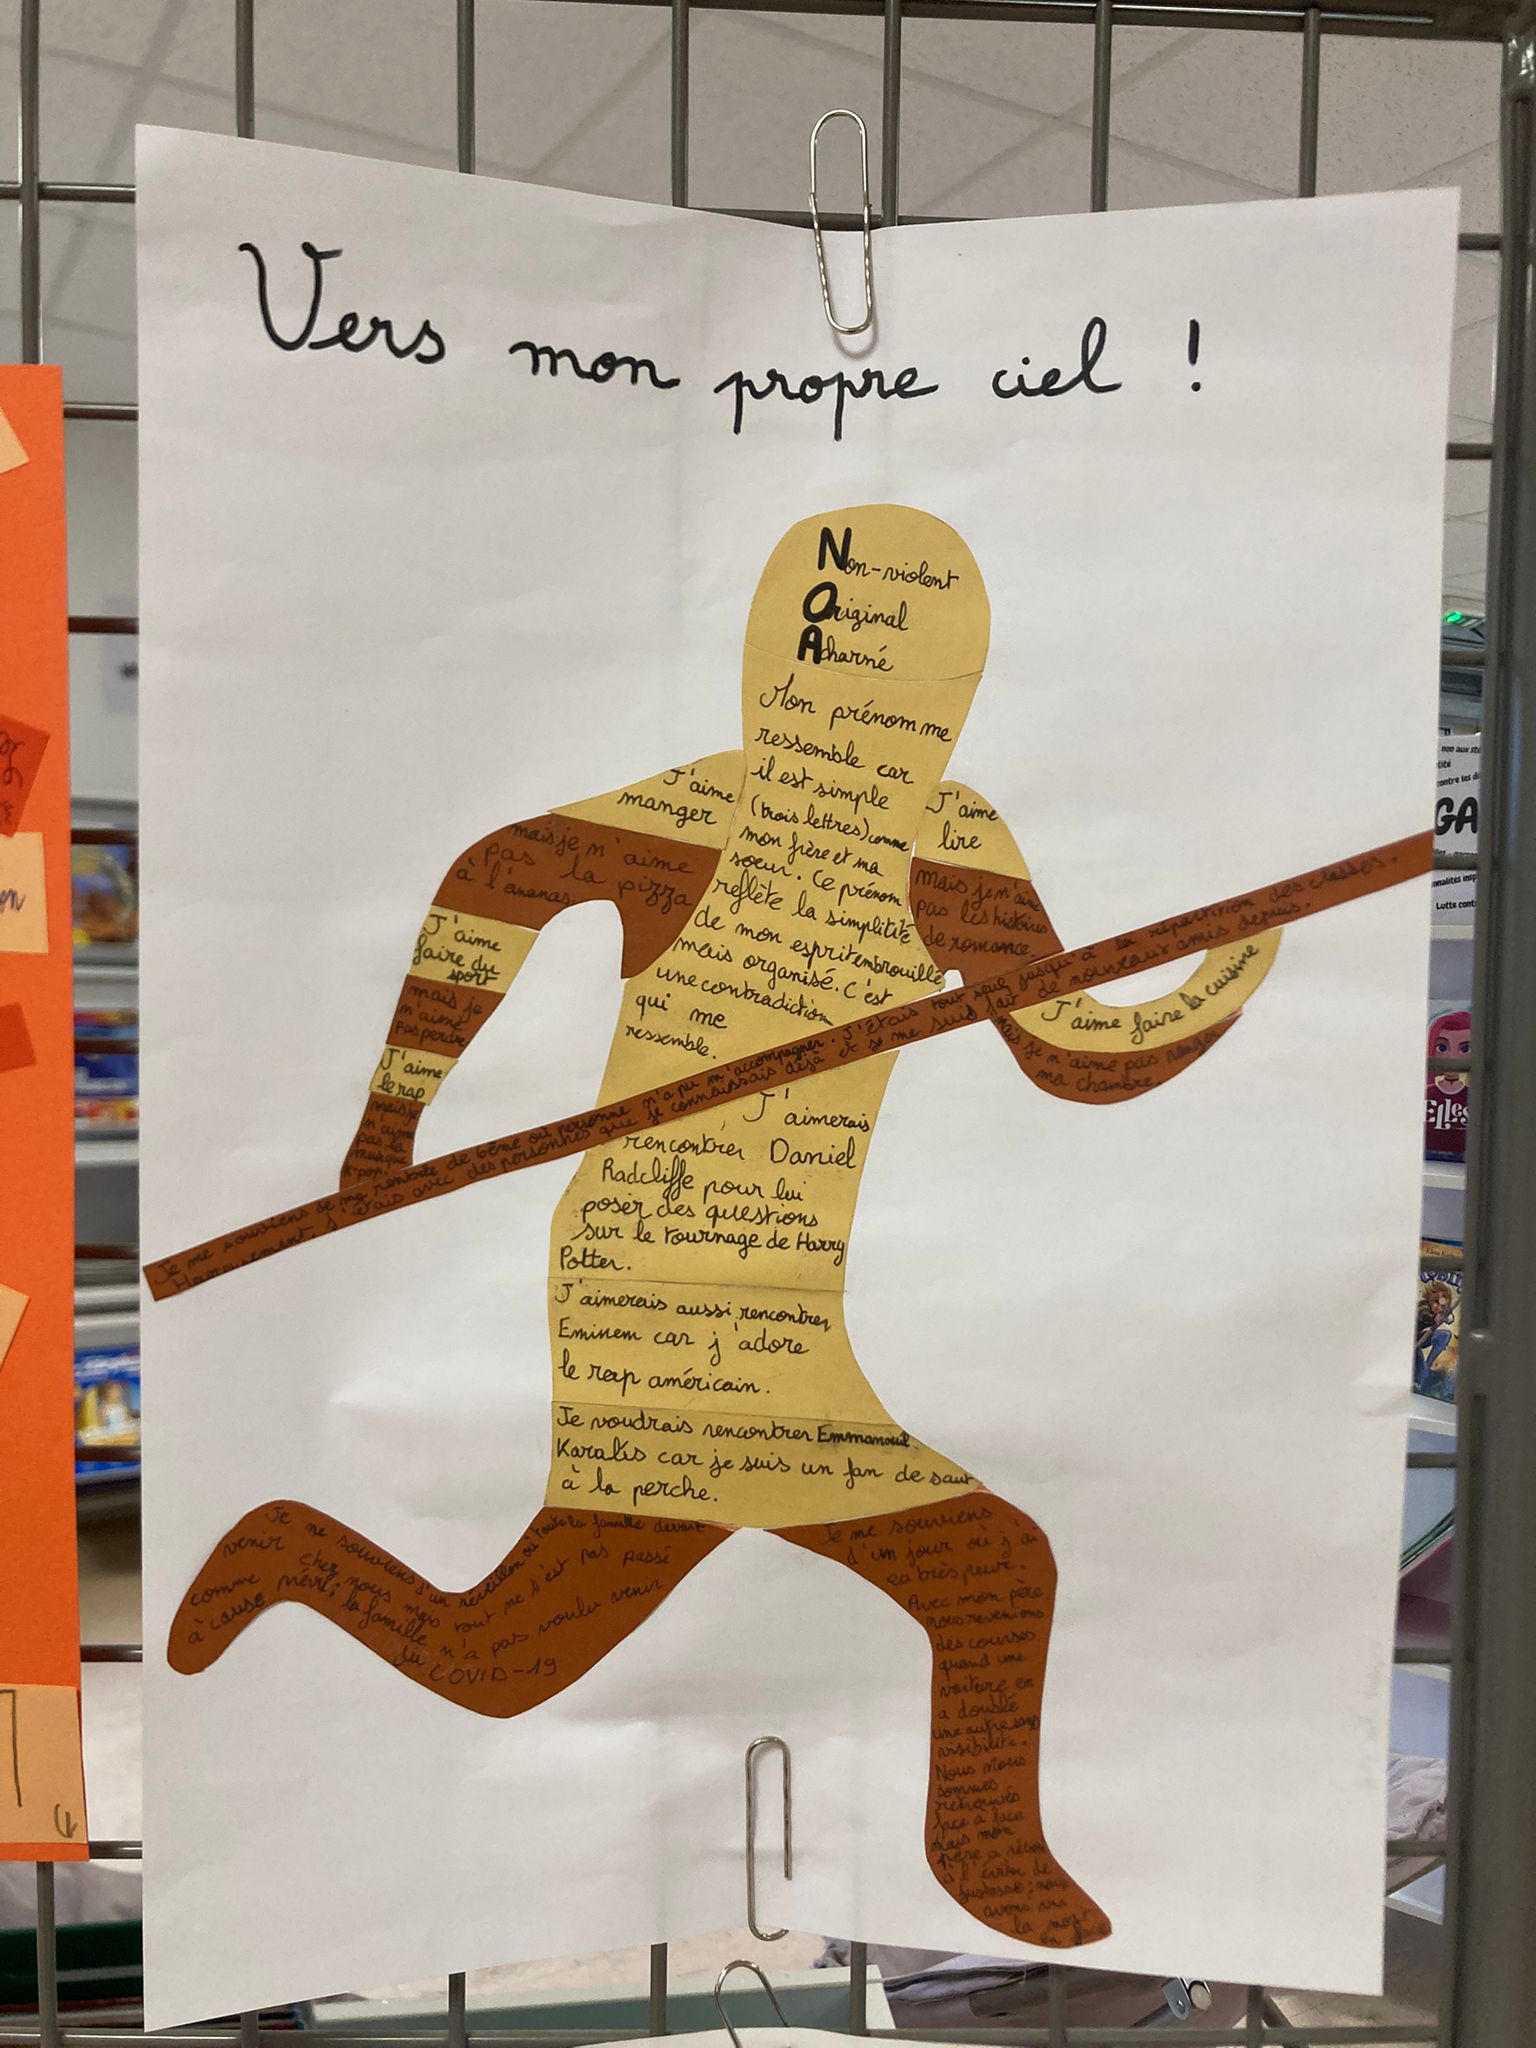 Vers mon propre ciel !
Non-violent
Original
Acharné
Mon prénom me
ressemble car
il est simple
(trois lettres) comme
mon frère et ma
soeur. Ce prénom
reflète la simplitité
de mon esprit embrouillé
mais organisé. C'est
une contradiction
qui me
ressemble.
J'aime
manger
mais je n'aime
pas la pizza
à l'ananas.
J'aime
faire du
sport
mais je
n'aime
pas perdre
J'aime
le rap
mais je
n'aime
pas la
musique
K-pop.
J'aime
lire
mais je n'aime
pas les histoires
de romance.
J'aime faire la cuisine
mais je n'aime pas ranger
ma chambre.
Je me souviens de ma rentrée de 6ème où personne n'a pu m'accompagner. J'étais tout seul jusqu'à la répartition des classes.
Heureusement, j'étais avec des personnes que je connaissais déjà et je me suis fait de nouveaux amis depuis.
J'aimerais
rencontrer Daniel
Radcliffe pour lui
poser des questions
sur le tournage de Harry
Potter.
J'aimerais aussi rencontrer
Eminem car j'adore
le rap américain.
Je voudrais rencontrer Emmanouil
Karalis car je suis un fan de saut
à la perche.
Je me souviens d'un réveillon où toute la famille devait
venir chez nous mais tout ne s'est pas passé
comme prévu; la famille n'a pas voulu venir
à cause du COVID-19
Je me souviens
d'un jour où j'ai
eu très peur.
Avec mon père,
nous revenions
des courses
quand une
voiture en
a doublé
une autre sans
visibilité.
Nous nous
sommes
retrouvés
face à face
mais mon
père a réussi
à l'éviter de
justesse; nous
avons vu
la mort
en face
GA
Elles